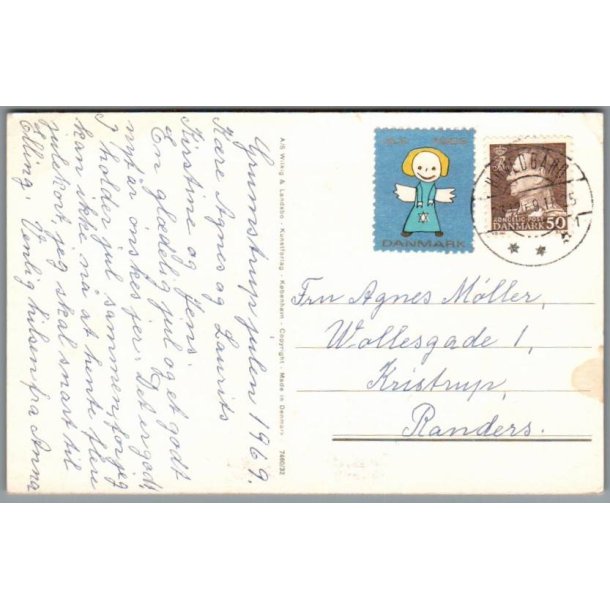 Grumstrup julen 1969.
Kære Agnes og Laurits
Kirstine og Jens.
En glædelig jul og et godt
nytår ønskes jer. Det er godt
I holder jul sammen, for jeg
kan ikke nå at hente flere
julekort, jeg skal snart til
Elling. Venlig hilsen fra Anna
A/S Wilkig & Landsbo - Kunstforlag - København - Copyright - Made in Denmark 7460/32
DANMARK
KONGELIG POST
DANMARK 50
Fru Agnes Møller,
Wollesgade 1,
Kristrup,
Randers.